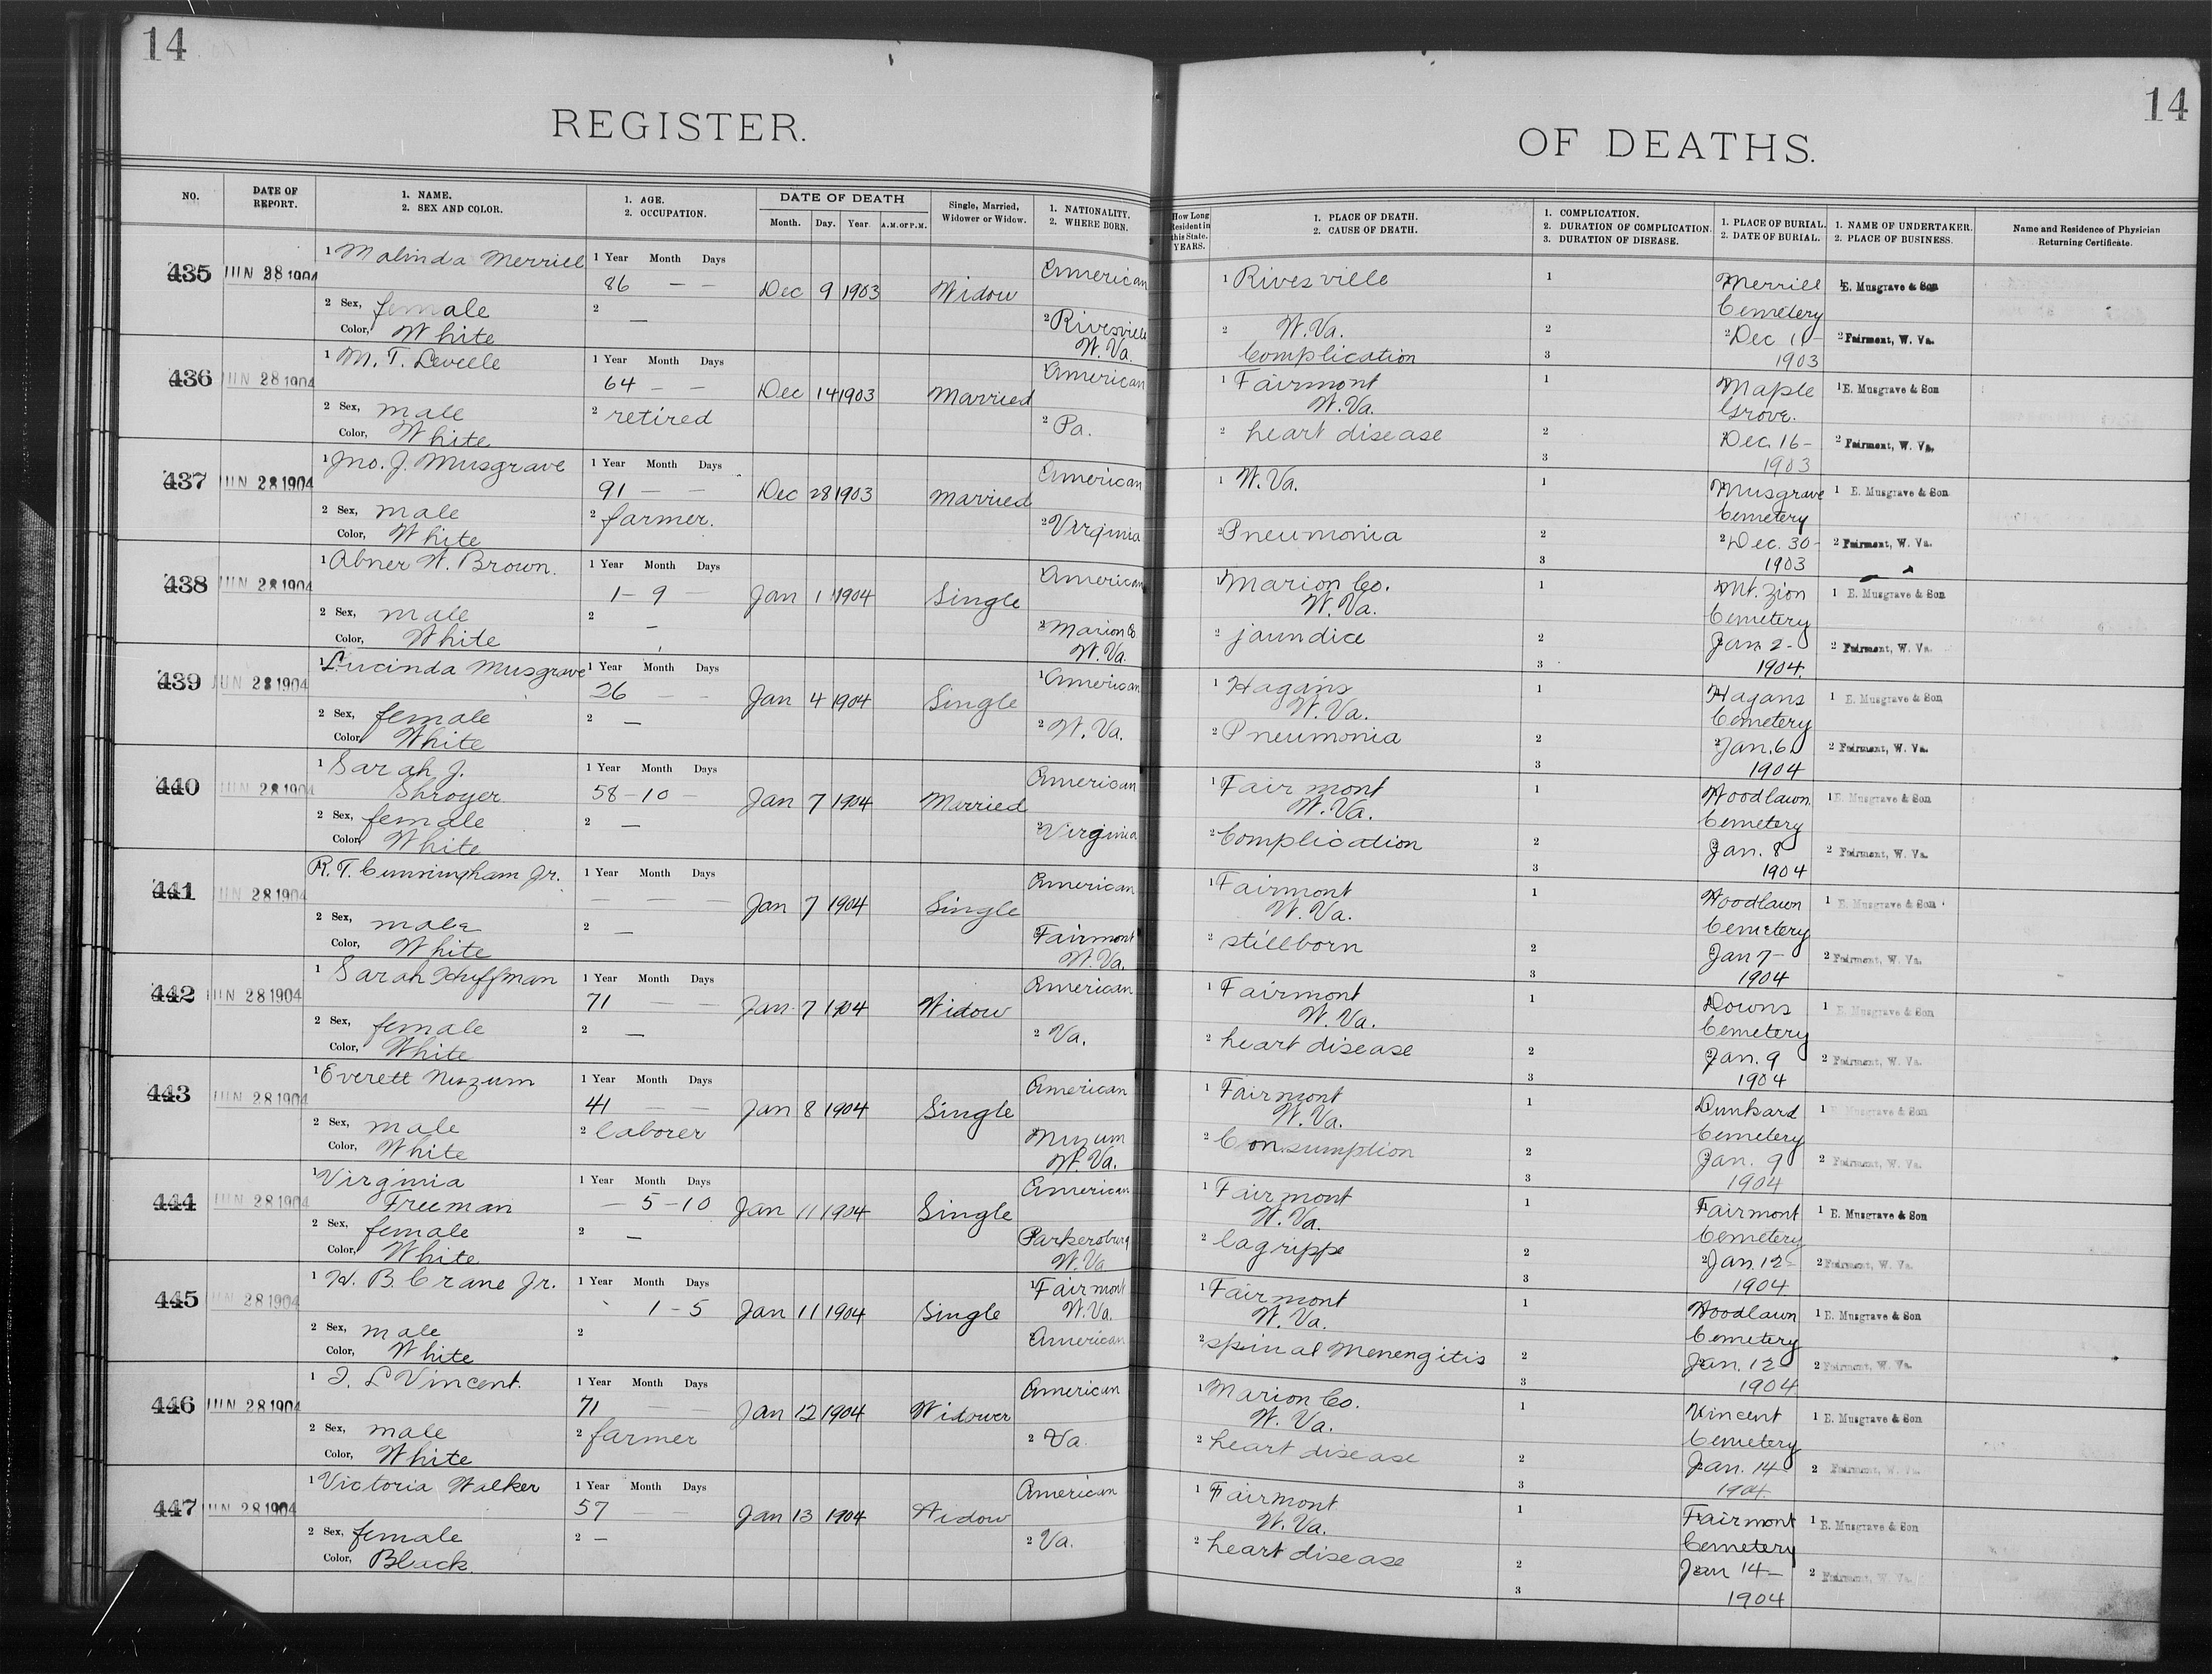 14
14
REGISTER.
OF DEATHS.
NO.
DATE OF REPORT.
1. NAME.
2. SEX AND COLOR.
1. AGE.
2. OCCUPATION.
DATE OF DEATH
Month. Day. Year. A.M. or P.M.
Single, Married, Widower or Widow.
1. NATIONALITY.
2. WHERE BORN.
How Long Resident in this State. YEARS.
1. PLACE OF DEATH.
2. CAUSE OF DEATH.
1. COMPLICATION.
2. DURATION OF COMPLICATION.
3. DURATION OF DISEASE.
1. PLACE OF BURIAL.
2. DATE OF BURIAL.
1. NAME OF UNDERTAKER.
2. PLACE OF BUSINESS.
Name and Residence of Physician Returning Certificate.
435 JUN 28 1904 1 Malinda Merrill 1 Year Month Days 86 — — Dec 9 1903 Widow American 1 Rivesville 1 Merrill Cemetery 1 E. Musgrave & Son
2 Sex, female Color, White 2 — 2 Rivesville W. Va. 2 W. Va. Complication 2 3 2 Dec 11- 1903 2 Fairmont, W. Va.
436 JUN 28 1904 1 M. T. Leveele 1 Year Month Days 64 — — Dec 14 1903 Married American 1 Fairmont W. Va. 1 Maple Grove. 1 E. Musgrave & Son
2 Sex, male Color, White 2 retired 2 Pa. 2 heart disease 2 3 Dec. 16- 1903 2 Fairmont, W. Va.
437 JUN 28 1904 1 Jno. J. Musgrave 1 Year Month Days 91 — — Dec 28 1903 Married American 1 W. Va. 1 Musgrave Cemetery 1 E. Musgrave & Son
2 Sex, male Color, White 2 farmer. 2 Virginia 2 Pneumonia 2 3 2 Dec. 30- 1903 2 Fairmont, W. Va.
438 JUN 28 1904 1 Abner W. Brown. 1 Year Month Days 1 - 9 - Jan 1 1904 Single American 1 Marion Co. W. Va. 1 Mt. Zion Cemetery 1 E. Musgrave & Son
2 Sex, male Color, White 2 - 2 Marion Co W. Va. 2 jaundice 2 3 Jan 2- 1904. 2 Fairmont, W. Va.
439 JUN 28 1904 1 Lucinda Musgrave 1 Year Month Days 26 — — Jan 4 1904 Single 1 American 1 Hagans W. Va. 1 Hagans Cemetery 1 E. Musgrave & Son
2 Sex, female Color, White 2 — 2 W. Va. 2 Pneumonia 2 3 2 Jan. 6. 1904 2 Fairmont, W. Va.
440 JUN 28 1904 1 Sarah J. Shroyer 1 Year Month Days 58 - 10 - Jan 7 1904 Married American 1 Fairmont W. Va. 1 Woodlawn Cemetery 1 E. Musgrave & Son
2 Sex, female Color, White 2 — 2 Virginia 2 Complication 2 3 Jan. 8 1904 2 Fairmont, W. Va.
441 JUN 28 1904 R. T. Cunningham Jr. 1 Year Month Days — — — Jan 7 1904 Single American 1 Fairmont W. Va. 1 Woodlawn Cemetery 1 E. Musgrave & Son
2 Sex, male Color, White 2 — 2 Fairmont W. Va. 2 stillborn 2 3 Jan 7- 1904 2 Fairmont, W. Va.
442 JUN 28 1904 1 Sarah Huffman 1 Year Month Days 71 — — Jan. 7 1904 Widow American 1 Fairmont W. Va. 1 Downs Cemetery 1 E. Musgrave & Son
2 Sex, female Color, White 2 — 2 Va. 2 heart disease 2 3 Jan. 9 1904 2 Fairmont, W. Va.
443 JUN 28 1904 1 Everett Nuzum 1 Year Month Days 41 — — Jan 8 1904 Single American 1 Fairmont W. Va. 1 Dunkard Cemetery 1 E. Musgrave & Son
2 Sex, male Color, White 2 laborer Nuzum W. Va. 2 Consumption 2 3 Jan. 9 1904 2 Fairmont, W. Va.
444 JUN 28 1904 1 Virginia Freeman 1 Year Month Days — 5 - 10 Jan 11 1904 Single American 1 Fairmont W. Va. 1 Fairmont Cemetery 1 E. Musgrave & Son
2 Sex, female Color, White 2 — Parkersburg W. Va. 2 lagrippe 2 3 2 Jan. 12- 1904 2 Fairmont, W. Va.
445 JUN 28 1904 1 H. B. Crane Jr. 1 Year Month Days 1 - 5 Jan 11 1904 Single 1 Fairmont W. Va. 1 Fairmont W. Va. 1 Woodlawn Cemetery 1 E. Musgrave & Son
2 Sex, male Color, White 2 American 2 spinal Menengitis 2 3 Jan. 12 1904 2 Fairmont, W. Va.
446 JUN 28 1904 1 Vincent. 1 Year Month Days 71 — — Jan 12 1904 Widower American 1 Marion Co. W. Va. 1 Vincent Cemetery 1 E. Musgrave & Son
2 Sex, male Color, White 2 farmer 2 Va. 2 heart disease 2 3 Jan. 14- 1904. 2 Fairmont, W. Va.
447 JUN 28 1904 1 Victoria Walker 1 Year Month Days 57 — — Jan 13 1904 Widow American 1 Fairmont W. Va. 1 Fairmont Cemetery 1 E. Musgrave & Son
2 Sex, female Color, Black 2 — 2 Va. 2 heart disease 2 3 Jan 14- 1904 2 Fairmont, W. Va.